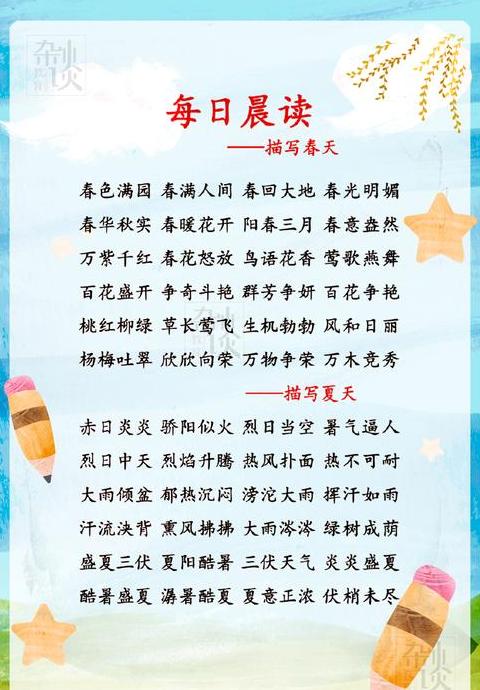 每日晨读
——描写春天
春色满园 春满人间 春回大地 春光明媚
春华秋实 春暖花开 阳春三月 春意盎然
万紫千红 春花怒放 鸟语花香 莺歌燕舞
百花盛开 争奇斗艳 群芳争妍 百花争艳
桃红柳绿 草长莺飞 生机勃勃 风和日丽
杨梅吐翠 欣欣向荣 万物争荣 万木竞秀
——描写夏天
赤日炎炎 骄阳似火 烈日当空 暑气逼人
烈日中天 烈焰升腾 热风扑面 热不可耐
大雨倾盆 郁热沉闷 滂沱大雨 挥汗如雨
汗流浃背 熏风拂拂 大雨滂滂 绿树成荫
盛夏三伏 夏阳酷暑 三伏天气 炎炎盛夏
酷暑盛夏 溽暑酷夏 夏意正浓 伏梢未尽